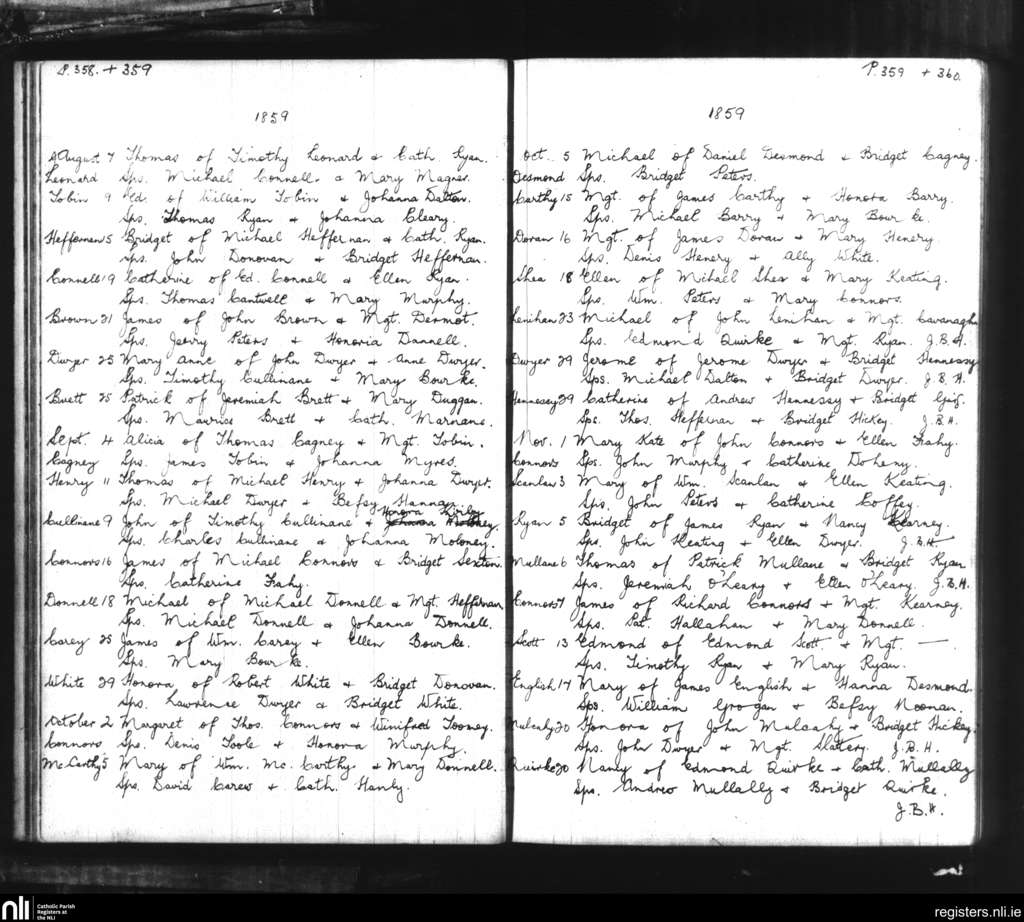 P. 358. + 359
1859
August 7 Thomas of Timothy Leonard & Cath. Ryan.
Leonard Sps. Michael Connell. & Mary Magner.
Tobin 9 Ed. of William Tobin & Johanna Dalton.
Sps. Thomas Ryan & Johanna Cleary.
Heffernan 5 Bridget of Michael Heffernan & Cath. Ryan.
Sps. John Donovan & Bridget Heffernan.
Connell 19 Catherine of Ed. Connell & Ellen Ryan.
Sps. Thomas Cantwell & Mary Murphy.
Brown 21 James of John Brown & Mgt. Dermot.
Sps. Jerry Peters & Honoria Dannell.
Dwyer 25 Mary Anne of John Dwyer & Anne Dwyer.
Sps. Timothy Cullinane & Mary Bourke.
Brett 25 Patrick of Jeremiah Brett & Mary Duggan.
Sps. Maurice Brett & Cath. Marnane.
Sept. 4 Alicia of Thomas Cagney & Mgt. Tobin.
Cagney Sps. James Tobin & Johanna Myres.
Henry 11 Thomas of Michael Henry & Johanna Dwyer.
Sps. Michael Dwyer & Betsy Hannan
Honora Kirby
Cullinane 9 John of Timothy Cullinane & Johanna Moloney.
Sps. Charles Cullinane & Johanna Moloney.
Connors 16 James of Michael Connors & Bridget Sexton.
Sps. Catherine Frahy.
Donnell 18 Michael of Michael Donnell & Mgt. Heffernan,
Sps. Michael Donnell & Johanna Donnell.
Carey 25 James of Wm. Carey & Ellen Bourke.
Sps. Mary Bourke.
White 29 Honora of Robert White & Bridget Donovan.
Sps. Lawrence Dwyer & Bridget White.
October 2 Margaret of Thos. Connors & Winifred Toomey.
Connors Sps. Denis Toole & Honora Murphy.
McCarthy 5 Mary of Wm. Mc. Carthy & Mary Donnell.
Sps. David Carew & Cath. Hanly.
P. 359 + 360.
1859
Oct. 5 Michael of Daniel Desmond & Bridget Cagney.
Desmond Sps. Bridget Peters.
Carthy 15 Mgt. of James Carthy & Honora Barry.
Sps. Michael Barry & Mary Bourke.
Doran 16 Mgt. of James Doran & Mary Henery.
Sps. Denis Henery & Ally White.
Shea 18 Ellen of Michael Shea & Mary Keating.
Sps. Wm. Peters & Mary Connors.
Lenihan 23 Michael of John Lenihan & Mgt. Cavanagh
Sps. Edmond Quirke & Mgt. Ryan. J.B.H.
Dwyer 29 Jerome of Jerome Dwyer & Bridget Hennessy
Sps. Michael Dalton & Bridget Dwyer. J.B.H.
Hennessy 29 Catherine of Andrew Hennessy & Bridget
Sps. Thos. Heffernan & Bridget Hickey. J.B.H.
Nov. 1 Mary Kate of John Connors & Ellen Frahy.
Connors Sps. John Murphy & Catherine Doheny.
Scanlan 3 Mary of Wm. Scanlan & Ellen Keating.
Sps. John Peters & Catherine Coffey.
Ryan 5 Bridget of James Ryan & Nancy Kearney.
Sps. John Keating & Ellen Dwyer. J.B.H.
Mullane 6 Thomas of Patrick Mullane & Bridget Ryan
Sps. Jeremiah O'Leary & Ellen O'Leary. J.B.H.
Connors 7 James of Richard Connors & Mgt. Kearney.
Sps. Pat. Hallahan & Mary Donnell.
Scott 13 Edmond of Edmond Scott. & Mgt. —
Sps. Timothy Ryan & Mary Ryan.
English 14 Mary of James English & Hanna Desmond.
Sps. William Grogan & Betsy Noonan.
Mulcahy 20 Honora of John Mulcahy & Bridget Hickey.
Sps. John Dwyer & Mgt. Slattery. J.B.H.
Quirke 20 Nancy of Edmond Quirke & Cath. Mullally
Sps. Andrew Mullally & Bridget Quirke.
J.B.H.
nli Catholic Parish
Registers at
the NLI
registers.nli.ie